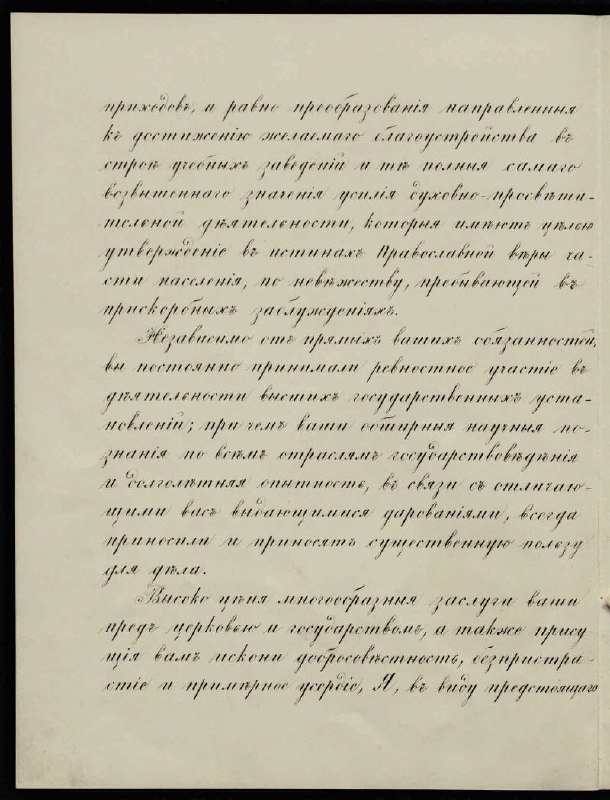 приходовъ, и равно преобразованія направленныя
къ достиженію желаемаго благоустройства въ
строѣ учебныхъ заведеній и тѣ полныя самаго
возвышеннаго значенія усилія духовно-просвѣти-
тельной дѣятельности, которыя имѣютъ цѣлью
утвержденіе въ истинахъ Православной вѣры ча-
сти населенія, по невѣжеству, пребывающей въ
прискорбныхъ заблужденіяхъ.
Независимо отъ прямыхъ вашихъ обязанностей,
вы постоянно принимали ревностное участіе въ
дѣятельности высшихъ государственныхъ уста-
новленій; при чемъ ваши обширныя научныя по-
знанія по всѣмъ отраслямъ государствовѣдѣнія
и долголѣтняя опытность, въ связи съ отличаю-
щими васъ выдающимися дарованіями, всегда
приносили и приносятъ существенную пользу
для дѣла.
Высоко цѣня многообразныя заслуги ваши
предъ церковью и государствомъ, а также прису
щія вамъ искони добросовѣстность, безпристра-
стіе и примѣрное усердіе, Я, въ виду предстоящаго